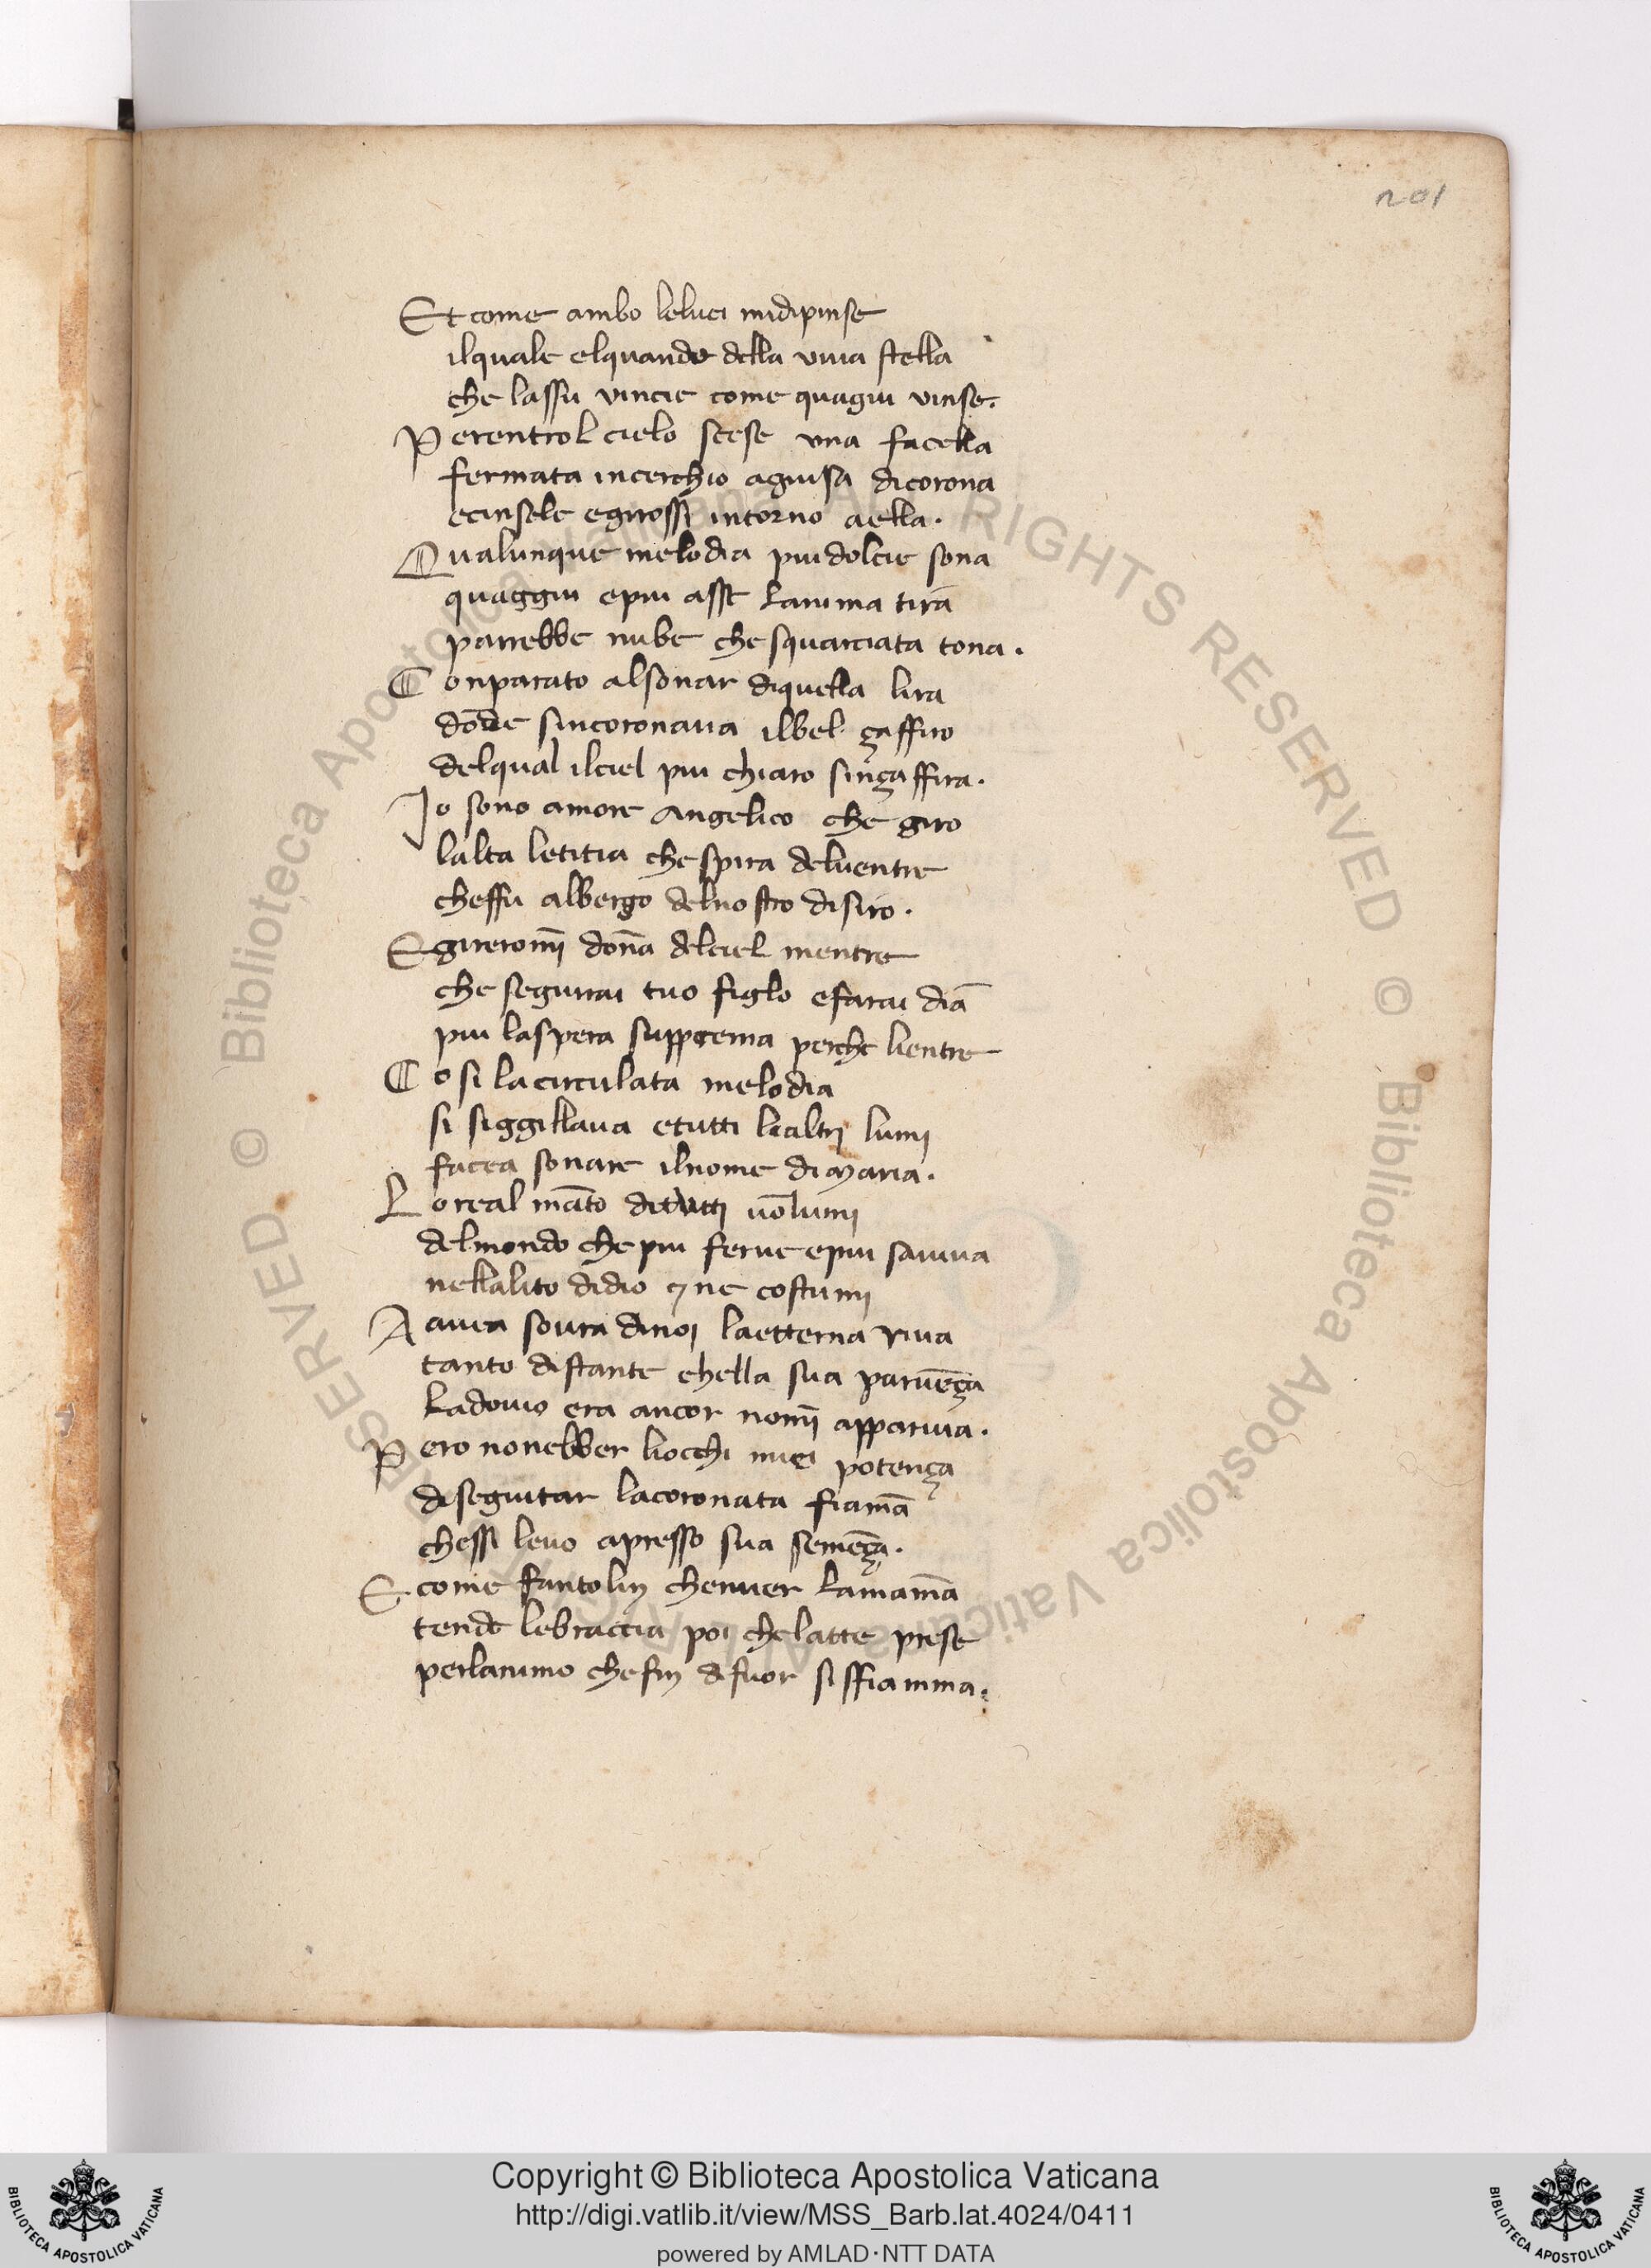 201
Et come ambo leluci midipinse
ilquale elquando della viua stella
che lassu vincie come quagiu vinse.
Perentrol cielo scese vna facella
fermata incerchio aguisa dicorona
ecinsele egirossi intorno aella.
Qualunque melodia piudolcie sona
quaggiu epiu asse lanima tira
parrebbe nube che squarciata tona.
Conparato alsonar diquella lira
dōde sincoronaua ilbel çaffiro
delqual ilciel piu chiaro sinçaffira.
Io sono amore angelico che giro
lalta letitia che spira deluentre
cheffu albergo delnostro disiro.
Egireromī dōna delciel mentre
che seguirai tuo figlo efarai diā
piu laspera supprema perche lientre
Cosi lacirculata melodia
si siggillaua etutti lialtrj lumj
facea sonare ilnome di maria.
Loreal māto ditutti uolumj
delmondo che piu ferue epiu sauiua
nellalito didio ⁊ ne costumj
Auea soura dinoj laetterna riua
tanto distante chella sua paruēça
ladouio era ancor nomī appariua.
Pero nonebber liocchi miei potença
diseguitar lacoronata fiamā
chessi leuo apresso sua semēça.
Ecome fantolin chenuer lamamā
tende lebraccia poi chelatte prese
perlanimo chefin difuor siffiamma.
Copyright © Biblioteca Apostolica Vaticana
http://digi.vatlib.it/view/MSS_Barb.lat.4024/0411
powered by AMLAD·NTT DATA
BIBLIOTECA APOSTOLICA VATICANA
BIBLIOTECA APOSTOLICA VATICANA
© Biblioteca Apostolica Vaticana ALL RIGHTS RESERVED © Biblioteca Apostolica Vaticana ALL RIGHTS RESERVED